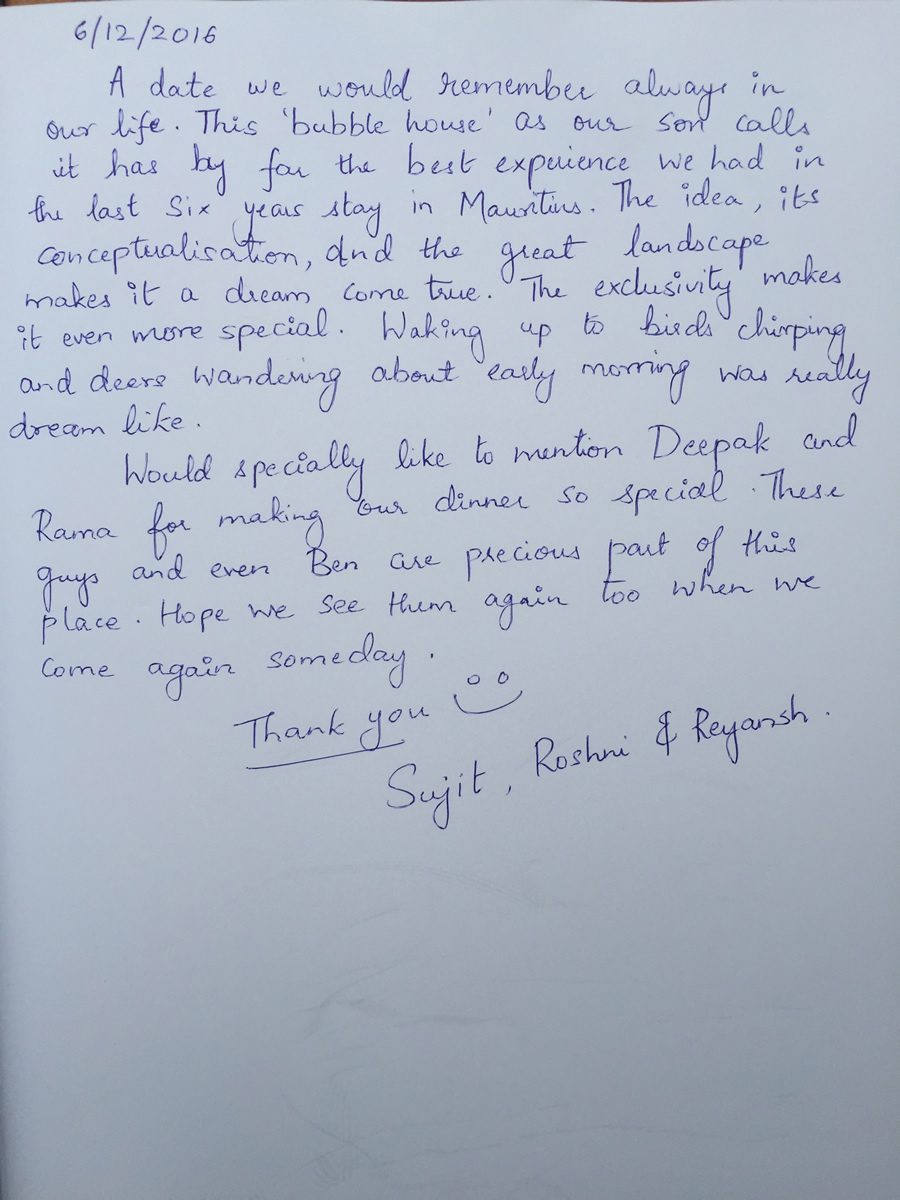 6/12/2016
A date we would remember always in
our life. This 'bubble house' as our son calls
it has by far the best experience we had in
the last Six years stay in Mauritius. The idea, its
conceptualisation, and the great landscape
makes it a dream come true. The exclusivity makes
it even more special. Waking up to birds chirping
and deers wandering about early morning was really
dream like.
Would specially like to mention Deepak and
Rama for making our dinner so special. These
guys and even Ben are precious part of this
place. Hope we see them again too when we
Come again someday.
Thank you
Sujit, Roshni & Reyansh.